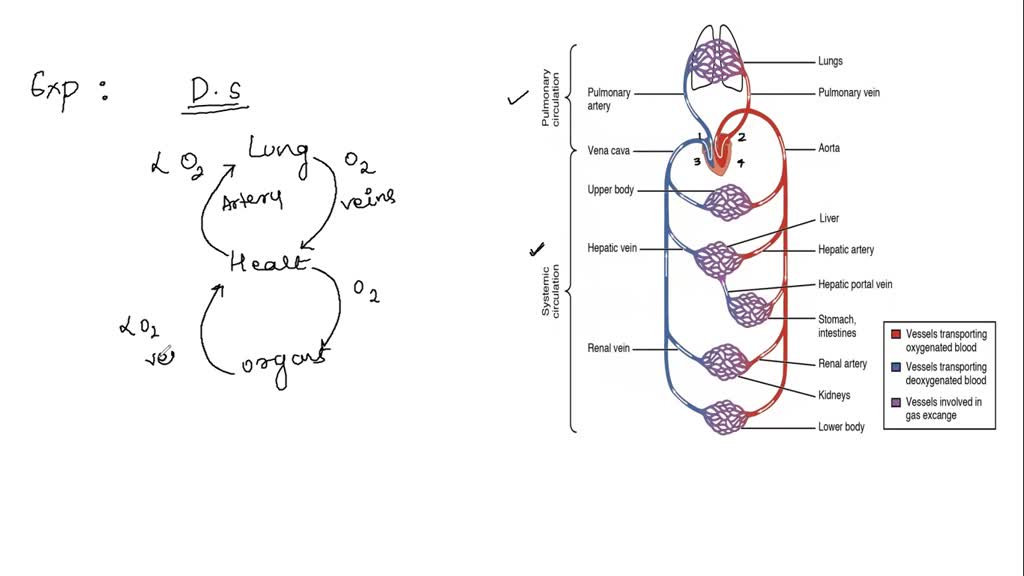 Exp :
D.s
Lung
LO2
O2
Artery
veins
Healt
O2
LO2
organs
Pulmonary circulation
Systemic circulation
Lungs
Pulmonary artery
Pulmonary vein
1 2
3 4
Vena cava
Aorta
Upper body
Liver
Hepatic vein
Hepatic artery
Hepatic portal vein
Stomach, intestines
Renal vein
Renal artery
Kidneys
Lower body
Vessels transporting
oxygenated blood
Vessels transporting
deoxygenated blood
Vessels involved in
gas excange